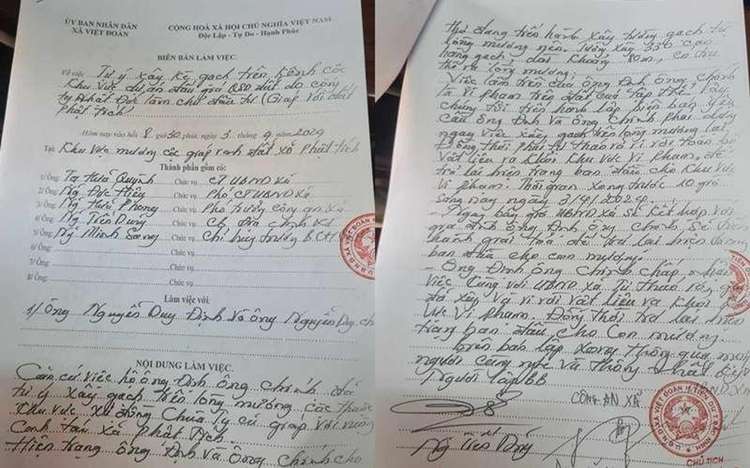 ỦY BAN NHÂN DÂN
XÃ VIỆT ĐOÀN
CỘNG HOÀ XÃ HỘI CHỦ NGHĨA VIỆT NAM
Độc Lập - Tự Do - Hạnh Phúc
BIÊN BẢN LÀM VIỆC
Về việc: Tự ý xây kè gạch trên kênh cốc
Khu vực dự án đấu giá QSD đất do công
ty Đất Đức làm chủ đầu tư (Giáp với đất
Phật Tích)
Hôm nay vào hồi 8 giờ 30 phút, ngày 3 tháng 9 2024
Tại: Khu vực mương cốc giáp ranh đất xã Phật tích
Thành phần gồm có:
1/ Ông: Tạ Hữu Quỳnh Chức vụ: CT UBND xã
2/ Ông: Ng Đức Hiếu Chức vụ: Phó CT UBND xã
3/ Ông: Ng Hữu Phong Chức vụ: Phó trưởng công an xã
4/ Ông: Ng Tiến Dũng Chức vụ: CB Địa chính xã
5/ Ông: Ng Minh Sang Chức vụ: Chỉ huy trưởng BCH
6/ Ông: Chức vụ:
7/ Ông: Chức vụ:
8/ Ông: Chức vụ:
Làm việc với:
1/ Ông Nguyễn Duy Định và ông Nguyễn Duy
NỘI DUNG LÀM VIỆC.
Căn cứ việc hộ ông Định ông Chinh đã
tự ý xây gạch trên lòng mương cốc thuộc
Khu vực xứ đồng Chùa Lý cũ giáp với
Canh tác xã Phật Tích
Hiện trạng ông Định và ông Chinh cho
thợ đang tiến hành xây tường gạch từ
lòng mương lên. Tường xây 330
gạch dài khoảng 80m,
lòng mương.
Việc làm trên của ông Định ông Chinh
là vi phạm trên đất tập thể
chúng tôi tiến hành lập biên bản yêu
cầu ông Định và ông Chinh phải dừng
ngay việc xây gạch trên lòng mương lại
Đồng thời phải tự tháo và di rời toàn bộ
vật liệu ra khỏi khu vực vi phạm, để
trả lại hiện trạng ban đầu cho khu vực
vi phạm. Thời gian xong trước 10 giờ
sáng nay ngày 3/9/2024.
- Ngay bây giờ UBND xã sẽ kết hợp với
gia đình ông Định ông Chinh sẽ tiến
hành giải tỏa để trả lại hiện trạng
ban đầu cho con mương.
- Ông Định ông Chinh chấp nhận
việc cùng với UBND xã tự tháo
đã xây và di rời vật liệu ra khỏi khu
vực vi phạm. Đồng thời trả lại hiện
trạng ban đầu cho con mương.
Biên bản lập xong thông qua mọi
người cùng nghe và thống nhất
Người lập BB
CÔNG AN XÃ
Ng Tiến Dũng
CHỦ TỊCH